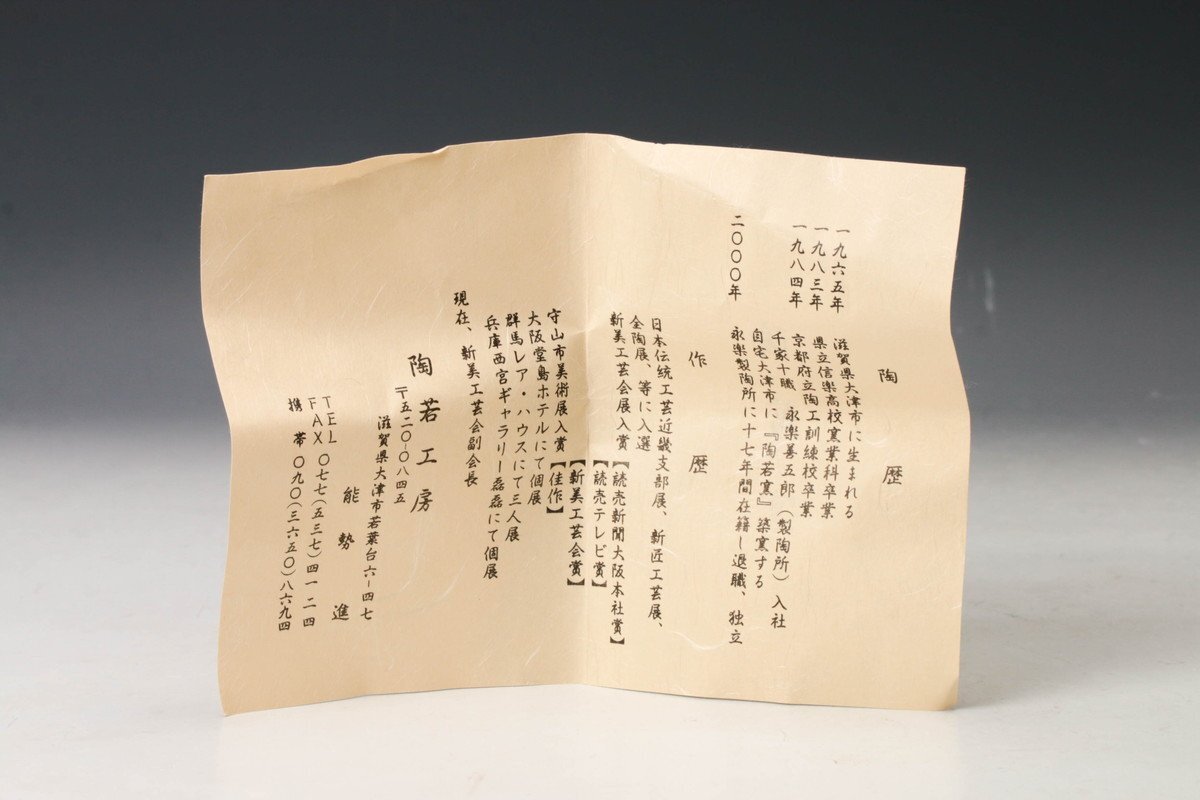 陶歴
一九六五年 滋賀県大津市に生まれる
一九八三年 県立信楽高校窯業科卒業
一九八四年 京都府立陶工訓練校卒業
千家十職 永楽善五郎（製陶所）入社
自宅大津市に『陶若窯』築窯する
二〇〇〇年 永楽製陶所に十七年間在籍し退職、独立
作歴
日本伝統工芸近畿支部展、新匠工芸展、
全陶展、等に入選
新美工芸会展入賞【読売新聞大阪本社賞】
【読売テレビ賞】
【新美工芸会賞】
守山市美術展入賞【佳作】
大阪堂島ホテルにて個展
群馬レア・ハウスにて三人展
兵庫西宮ギャラリー磊磊にて個展
現在、新美工芸会副会長
陶若工房
〒五二〇－〇八四五
滋賀県大津市若葉台六－四七
能勢進
TEL
FAX 〇七七（五三七）四一二四
携帯 〇九〇（三六五〇）八六九四